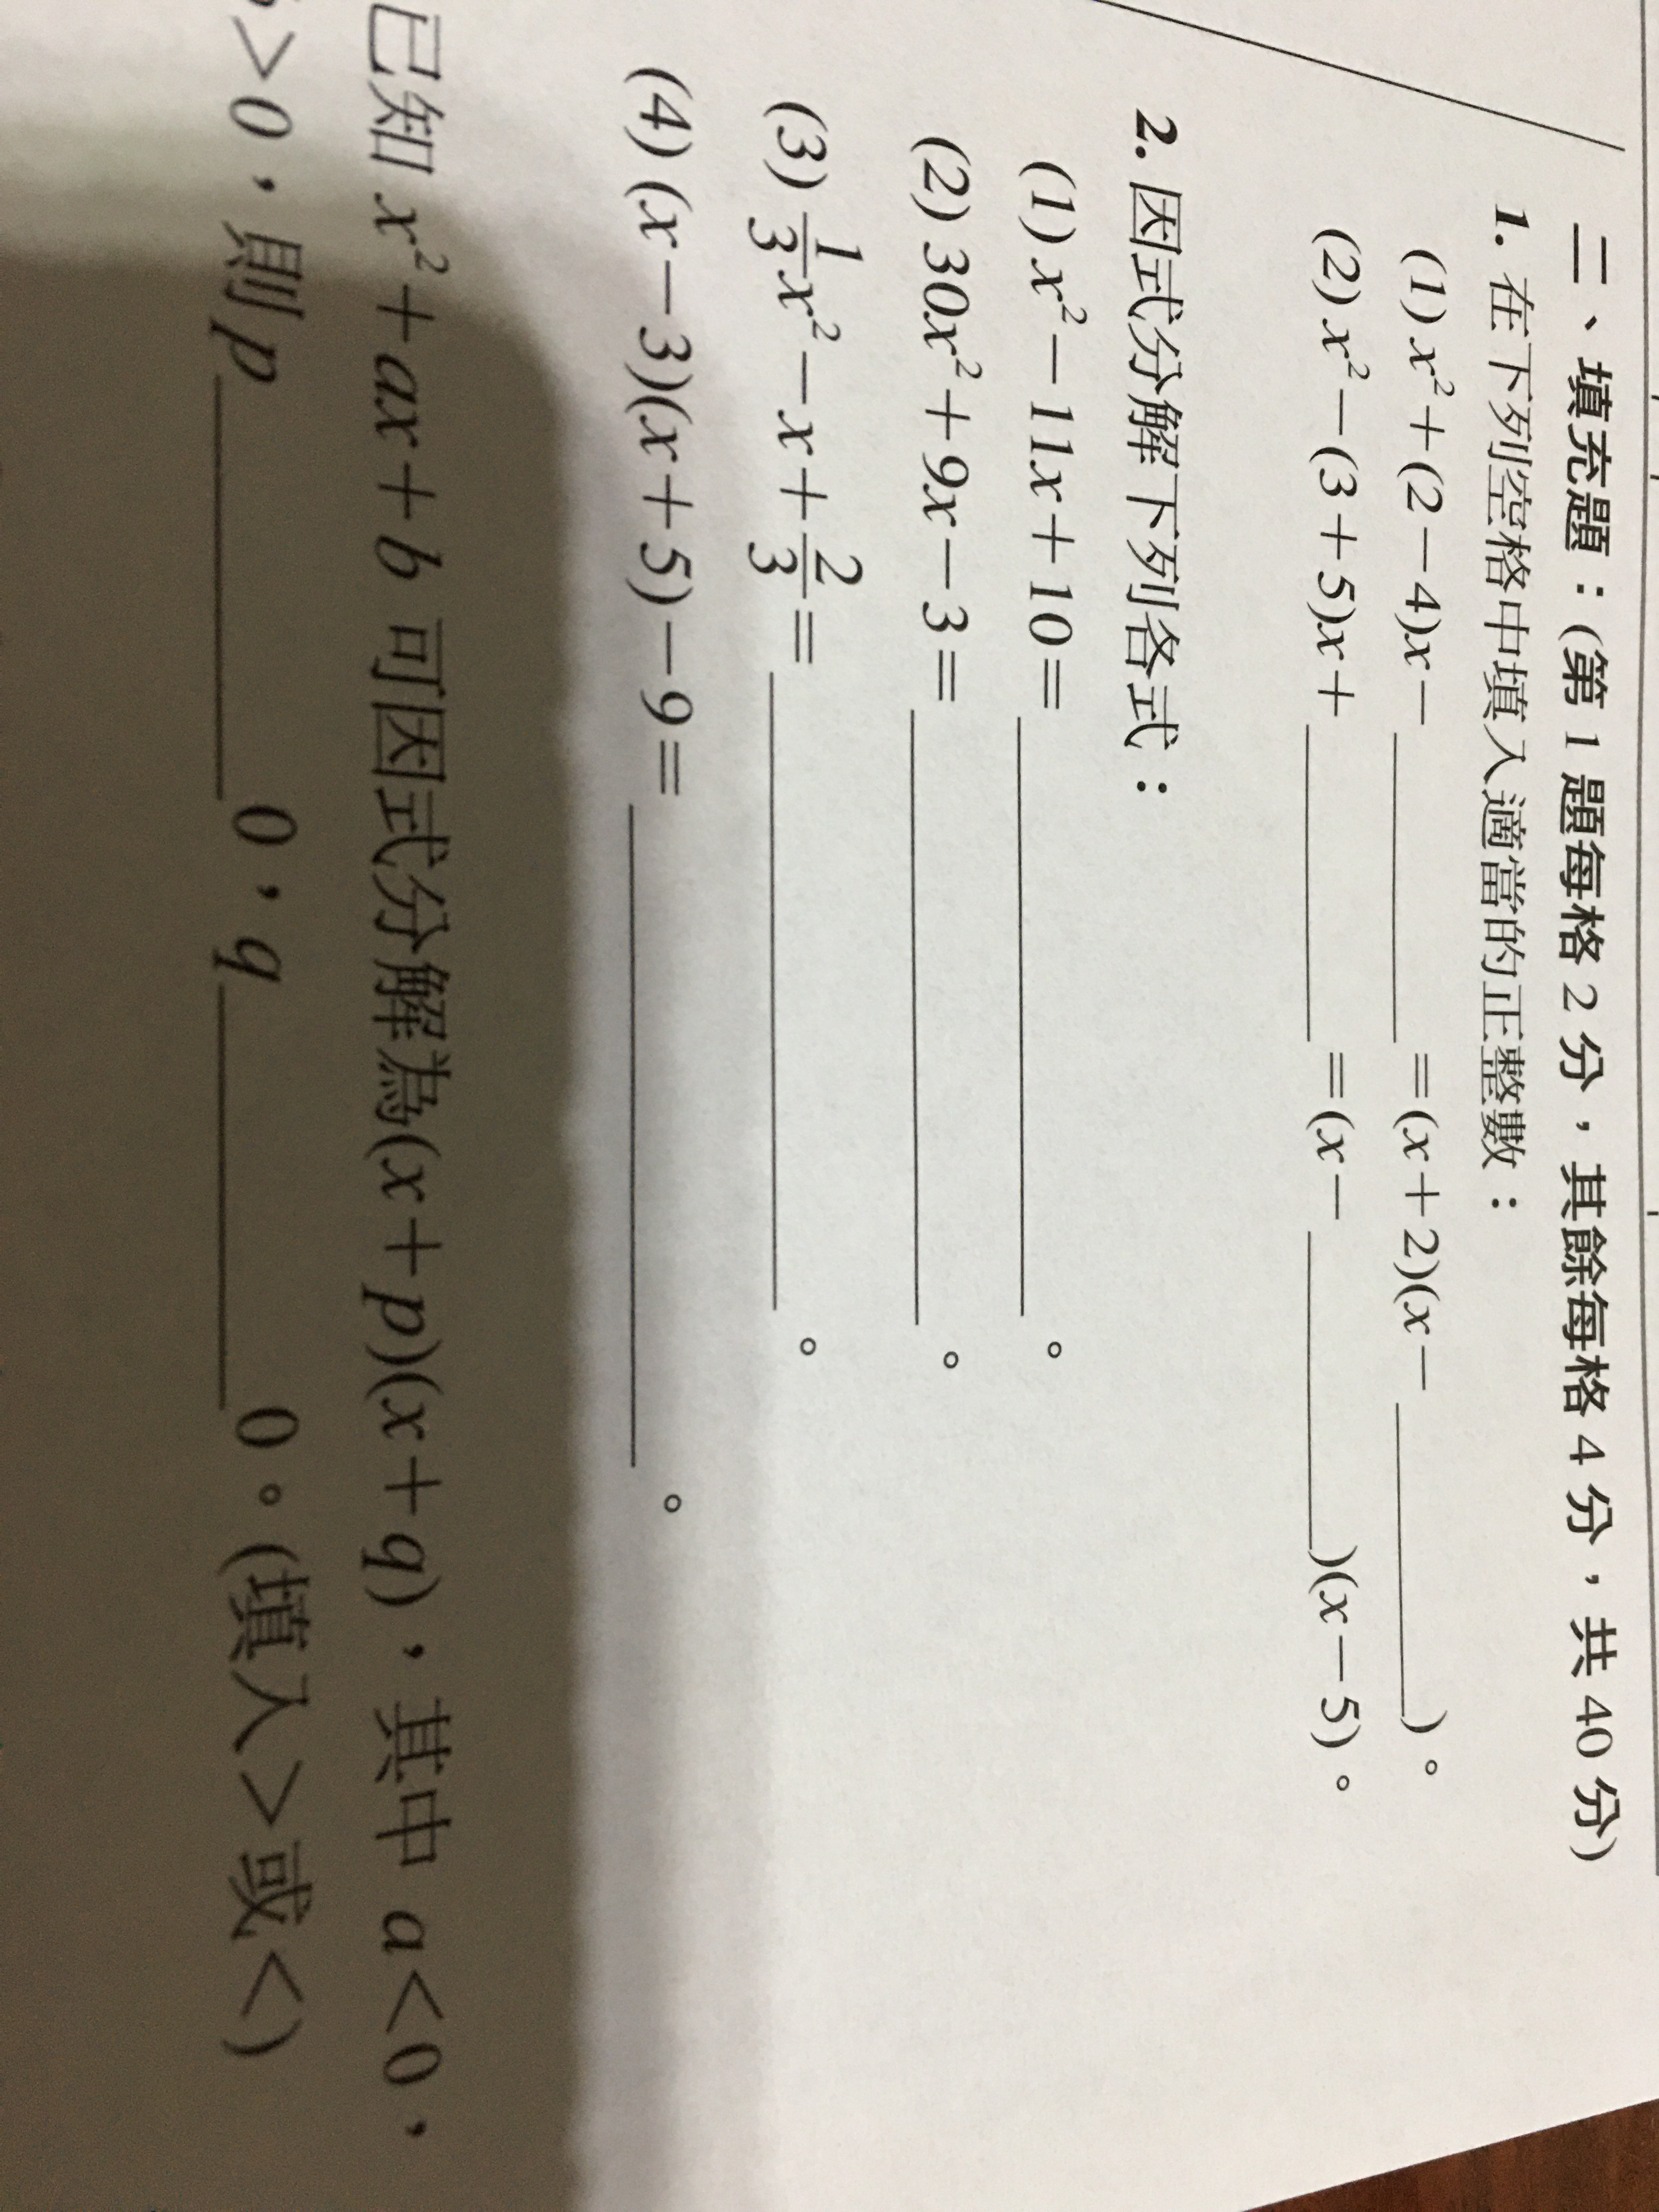 二、填充題：(第 1 題每格 2 分，其餘每格 4 分，共 40 分)
1. 在下列空格中填入適當的正整數：
(1) x²+(2−4)x−______=(x+2)(x−______)。
(2) x²−(3+5)x+______=(x−______)(x−5)。
2. 因式分解下列各式：
(1) x²−11x+10=______。
(2) 30x²+9x−3=______。
(3) 1/3x²−x+2/3=______。
(4) (x−3)(x+5)−9=______。
已知 x²+ax+b 可因式分解為(x+p)(x+q)，其中 a<0，
>0，則p______0，q______0。(填入>或<)